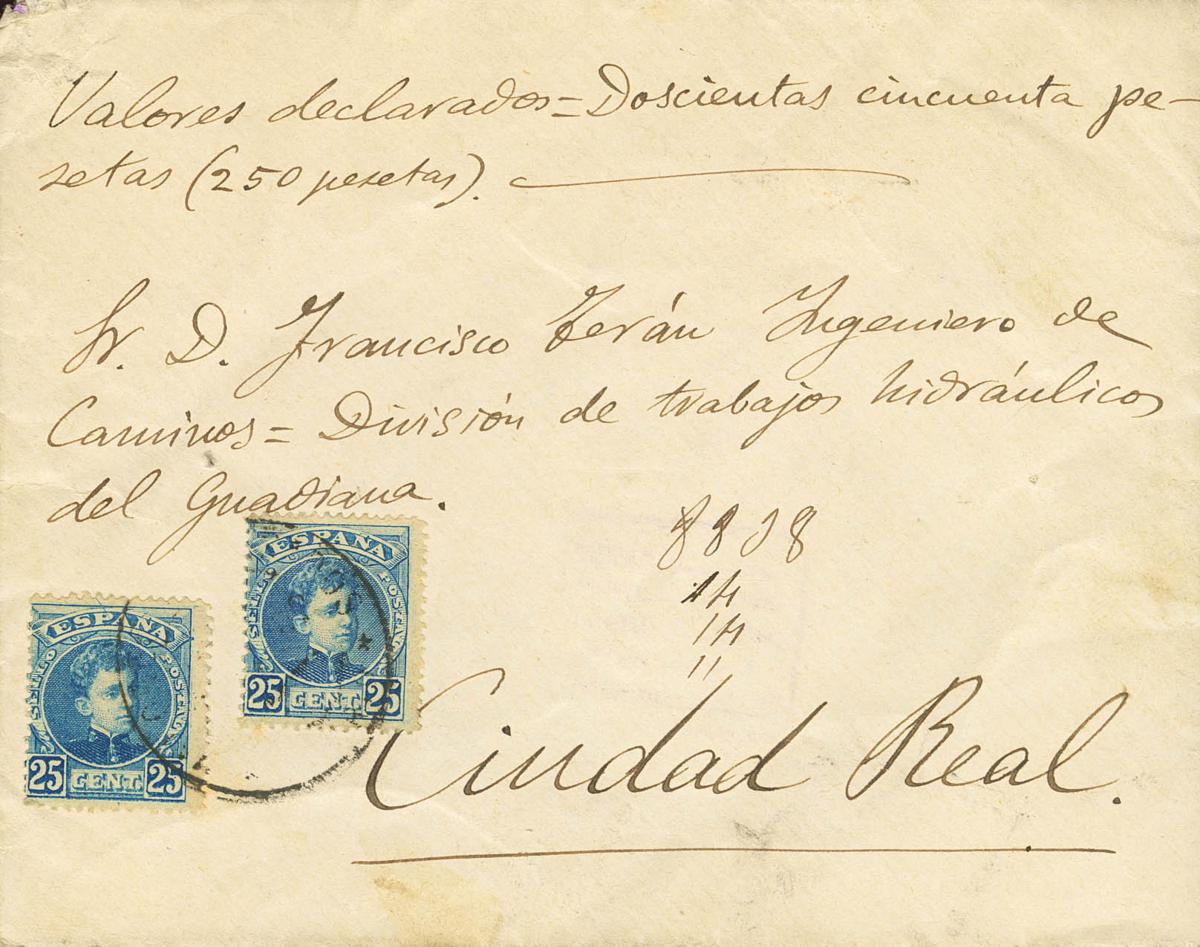 Valores declarados = Doscientas cincuenta pe-
setas (250 pesetas).
Sr. D. Francisco Terán Ingeniero de
Caminos = División de trabajos hidráulicos
del Guadiana.
14
14
11
Ciudad Real.
ESPAÑA
SELLO POSTAL
25 CENT 25
ESPAÑA
SELLO POSTAL
25 CENT 25